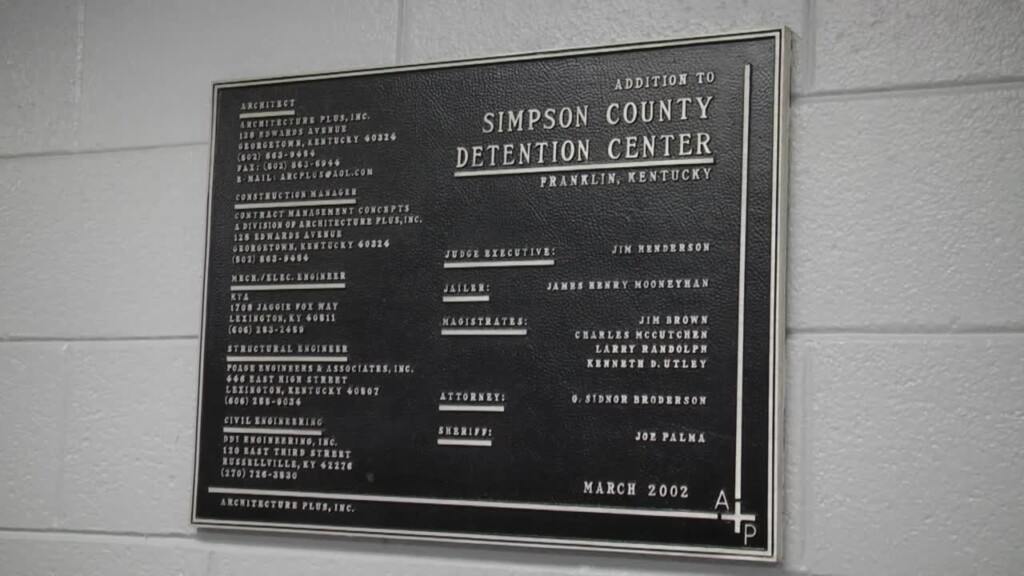 ARCHITECT
ARCHITECTURE PLUS, INC.
128 EDWARDS AVENUE
GEORGETOWN, KENTUCKY 40324
(502) 863-9494
FAX: (502) 863-
E-MAIL: ARCPLUS@AOL.COM
CONSTRUCTION MANAGER
CONTRACT MANAGEMENT CONCEPTS
A DIVISION OF ARCHITECTURE PLUS, INC.
128 EDWARDS AVENUE
GEORGETOWN, KENTUCKY 40324
(502) 863-9494
MECH./ELEC. ENGINEER
KTA
1708 JAGGIE FOX WAY
LEXINGTON, KY 40511
(606)
STRUCTURAL ENGINEER
POAGE ENGINEERS & ASSOCIATES, INC.
EAST HIGH STREET
LEXINGTON, KENTUCKY 40507
(606)
CIVIL ENGINEERING
DDI ENGINEERING, INC.
EAST THIRD STREET
RUSSELLVILLE, KY 42276
(270) 726-3830
ARCHITECTURE PLUS, INC.
ADDITION TO
SIMPSON COUNTY
DETENTION CENTER
FRANKLIN, KENTUCKY
JUDGE EXECUTIVE: JIM HENDERSON
JAILER: JAMES HENRY MOONEYHAN
MAGISTRATES: JIM BROWN
CHARLES MCCUTCHEN
LARRY RANDOLPH
KENNETH D. UTLEY
ATTORNEY: G. SIDNOR BRODERSON
SHERIFF: JOE PALMA
MARCH 2002
A
P